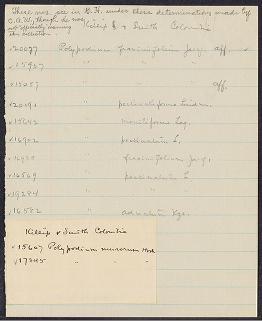 These now are in G.H. under these determinations made by
C.A.W. though he was
not officially naming
the collection
Killip & Smith Colombia
✓20077 Polypodium fraxinifolium Jacq. aff.
✓15907 " "
✓15057 " aff.
✓20191 " pectinatiforme Lindm.
✓15642 " moniliforme Lag.
✓16902 " pectinatum L.
" fraxinifolium Jacq.
✓16569 " pectinatum L
✓19284 " "
✓16582 " adnatum Kze.
Killip & Smith Colombia
✓15667 Polypodium murorum Hook
✓17845 " "